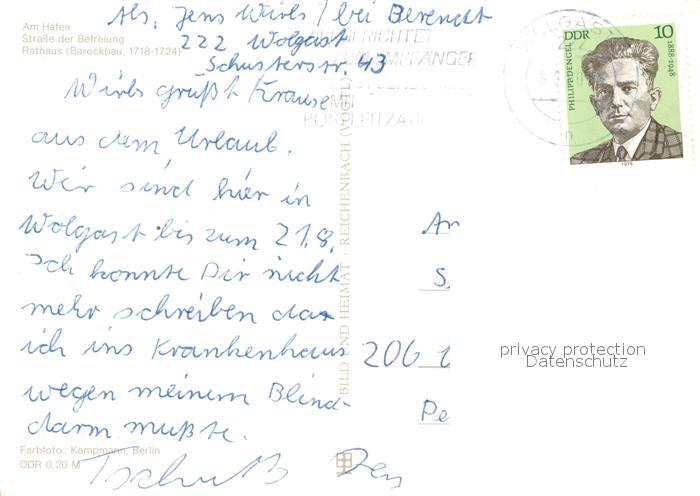 Abs. Jens Wirbs / bei Berendt
222 Wolgast
Schusterstr. 43
Am Hafen
Straße der Befreiung
Rathaus (Barockbau, 1718-1724)
Wirbs grüßt Krause
aus dem Urlaub.
Wir sind hier in
Wolgast bis zum 21.8.
Ich konnte Dir nicht
mehr schreiben da
ich ins Krankenhaus
wegen meinem Blind-
darm mußte.
Tschüß Jens
Farbfoto: Kampmann, Berlin
DDR 0,20 M
BILD UND HEIMAT · REICHENBACH (VOGTL)
EMPFÄNGER
MIT
POSTLEITZAHL
WOLGAST
222
DDR 10
PHILIPP DENGEL
1888-1948
1979
An
S
206 1
Pe
privacy protection
Datenschutz